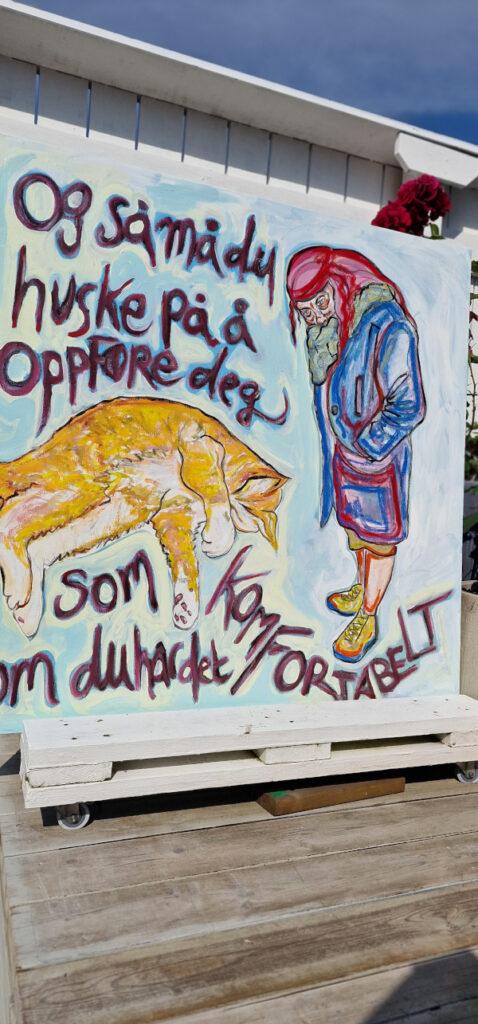 Og så må du
huske på å
OPPFØRE deg
som
om du har det KOMFORTABELT